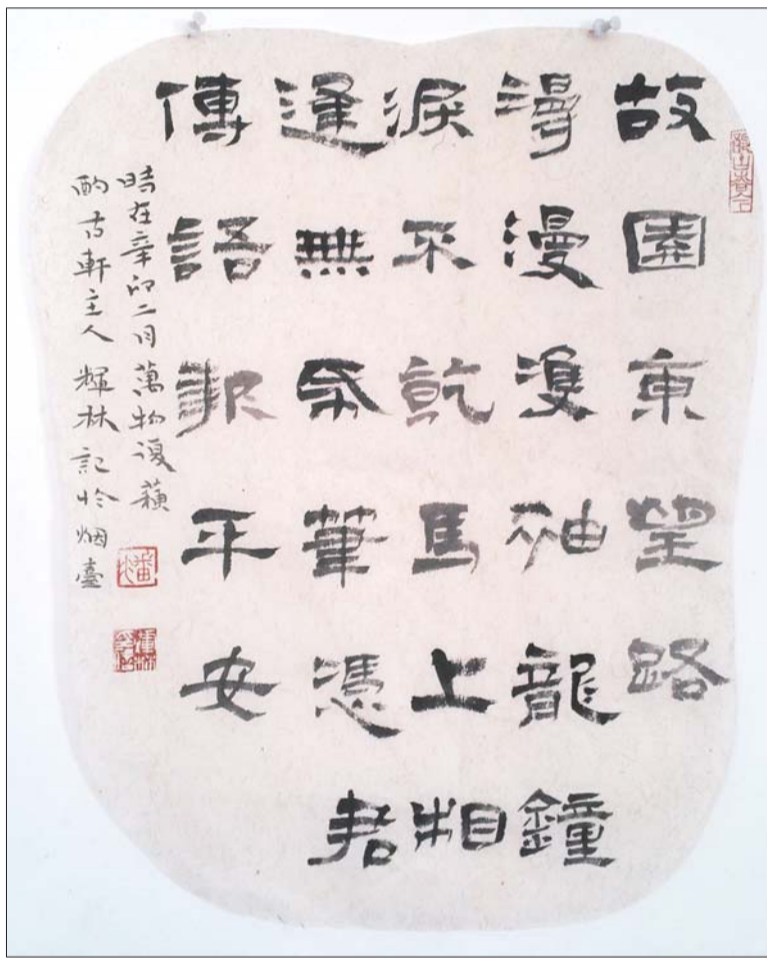 故園東望路
漫漫雙袖龍鐘
淚不乾馬上相
逢無帋筆憑君
傳語報平安
時在辛卯二月萬物復蘇
酌古軒主人輝林記於烟臺